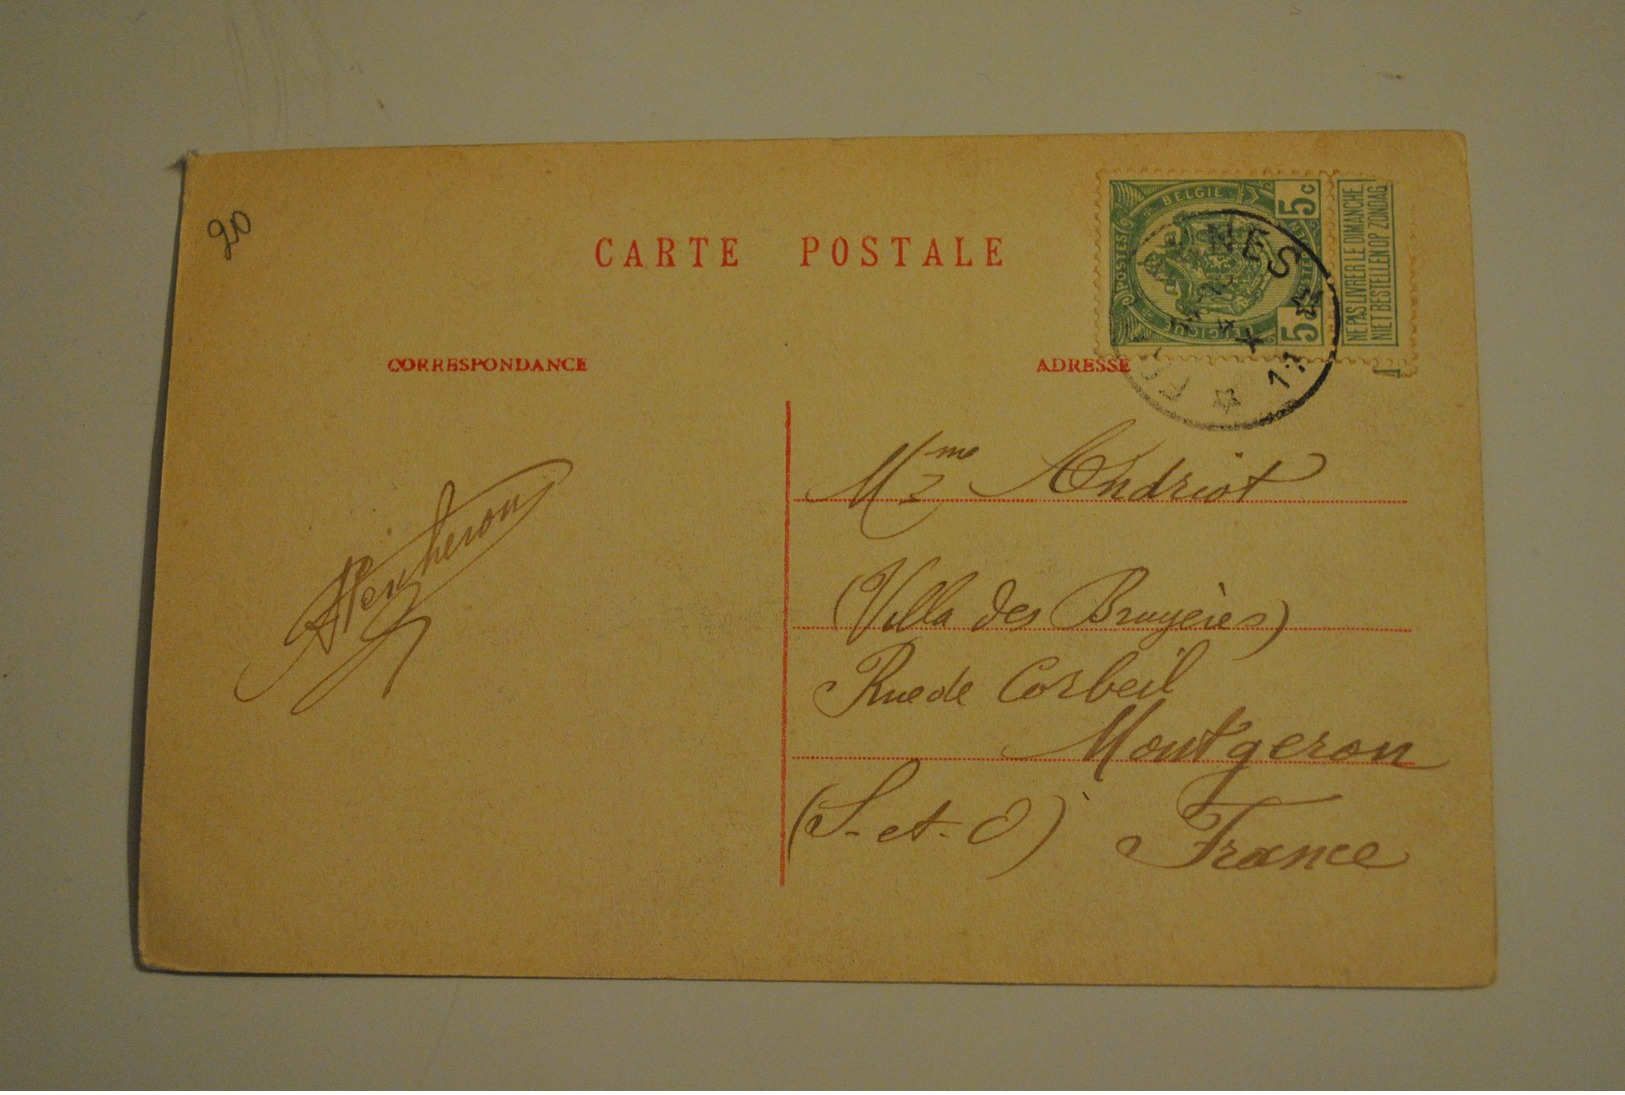 20
CARTE POSTALE
CORRESPONDANCE
ADRESSE
POSTES
BELGIE
BELGIQUE
5c
5
NE PAS LIVRER LE DIMANCHE.
NIET BESTELLEN OP ZONDAG.
Mme Andriot
(Villa des Bruyères)
Rue de Corbeil
Montgeron
(S-et-O)
France